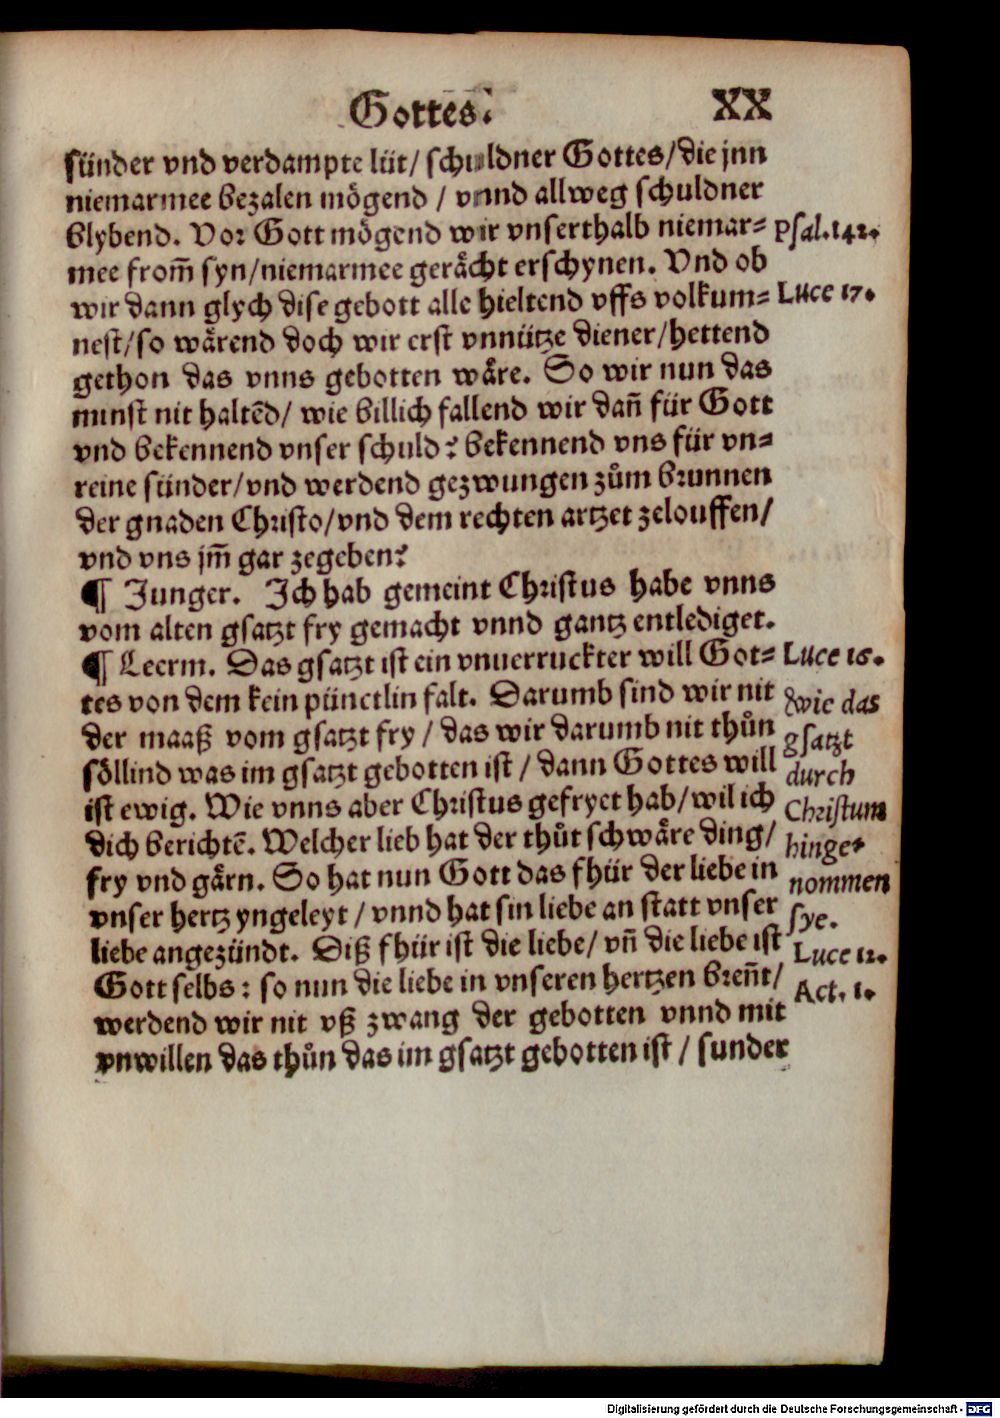 Gottes. XX
sünder vnd verdampte lüt/ schuldner Gottes/die jnn
niemarmee bezalen mögend / vnnd allweg schuldner
blybend. Vor Gott mögend wir vnserthalb niemar=
Psal.142.
mee from̃ syn/niemarmee geråcht erschynen. Vnd ob
wir dann glych dise gebott alle hieltend vffs volkum=
Luce 17.
nest/so wårend doch wir erst vnnütze diener/hettend
gethon das vnns gebotten wåre. So wir nun das
minst nit haltẽd/ wie billich fallend wir dañ für Gott
vnd bekennend vnser schuld? bekennend vns für vn=
reine sünder/vnd werdend gezwungen zům brunnen
der gnaden Christo/vnd dem rechten artzet zelouffen/
vnd vns jm̃ gar zegeben?
¶ Junger. Ich hab gemeint Christus habe vnns
vom alten gsatzt fry gemacht vnnd gantz entlediget.
¶ Leerm. Das gsatzt ist ein vnuerruckter will Got=
Luce 16.
tes von dem kein pünctlin falt. Darumb sind wir nit
der maaß vom gsatzt fry / das wir darumb nit thůn
söllind was im gsatzt gebotten ist / dann Gottes will
ist ewig. Wie vnns aber Christus gefryet hab/wil ich
dich berichtẽ. Welcher lieb hat der thůt schwåre ding/
fry vnd gårn. So hat nun Gott das fhür der liebe in
vnser hertz yngeleyt / vnnd hat sin liebe an statt vnser
liebe angezündt. Diß fhür ist die liebe/ vñ die liebe ist
Gott selbs : so nun die liebe in vnseren hertzen breñt/
werdend wir nit vß zwang der gebotten vnnd mit
vnwillen das thůn das im gsatzt gebotten ist / sunder
Wie das
gsatzt
durch
Christum
hinge-
nommen
sye.
Luce 12.
Act. 1.
Digitalisierung gefördert durch die Deutsche Forschungsgemeinschaft - DFG